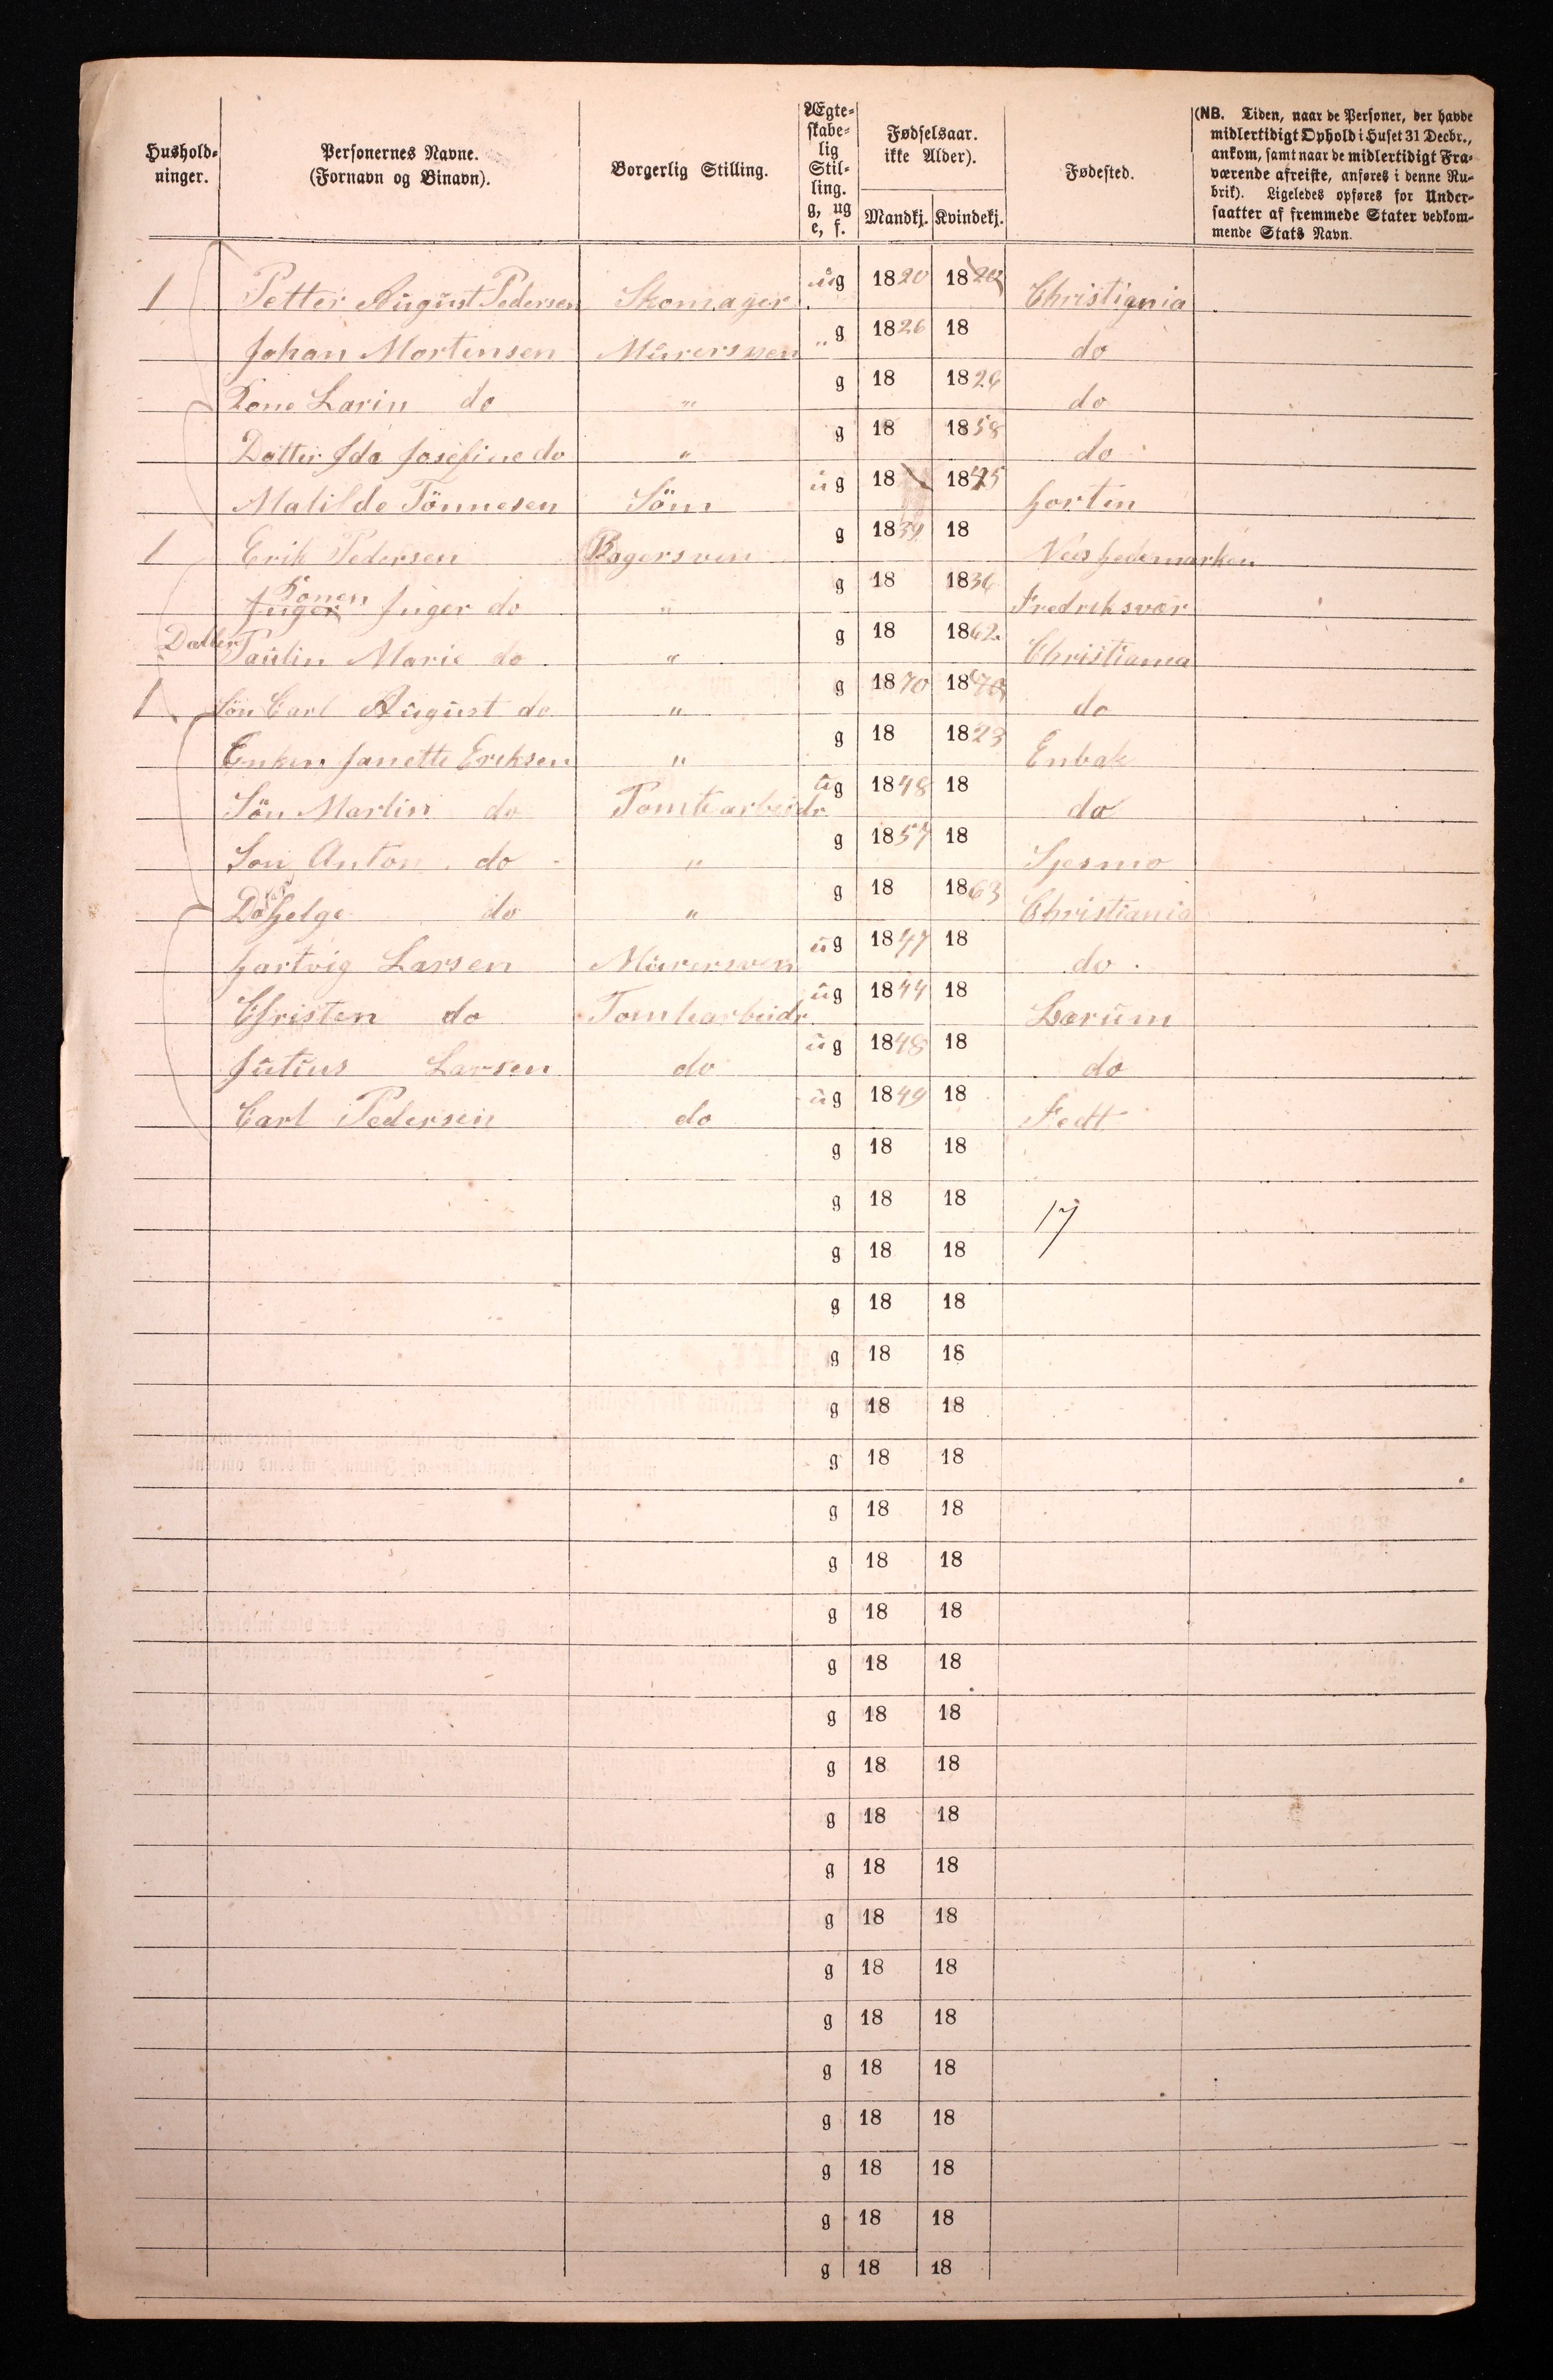 Hushold-
ninger.
Personernes Navne.
(Fornavn og Binavn).
Borgerlig Stilling.
Ægte-
skabe-
lig
Stil-
ling.
g, ug
e, f.
Fødselsaar.
ikke Alder).
Mandkj. Kvindekj.
Fødested.
(NB. Tiden, naar de Personer, der havde
midlertidigt Ophold i Huset 31 Decbr.,
ankom, samt naar de midlertidigt Fra-
værende afreiste, anføres i denne Ru-
brik). Ligeledes opføres for Under-
saatter af fremmede Stater vedkom-
mende Stats Navn.
1 Petter August Pedersen Skomager ug 1820 18 Christiania
Johan Mortensen Murersven " g 1826 18 do
Kone Larin do " g 18 1826 do
Datter Ida Josefine do " g 18 1858 do
Matilde Tönnesen Söm ug 18 1845 Horten
1 Erik Pedersen Bagersven g 1839 18 Hedemarken
Konen Inger do " g 18 1836 Fredriksvær
Datter Paulin Marie do " g 18 1862 Christiania
1 Sön Carl August do " g 1870 18 do
Enken Janette Eriksen " g 18 1823 Enbak
Sön Martin do Tomtearbeidr ug 1848 18 do
Son Anton do " g 1857 18
Helge do " g 18 1863 Christiania
Hartvig Larsen Murersven ug 1847 18 do
Christen do Tomtearbeidr ug 1844 18 Bærum
Julius Larsen do ug 1848 18 do
Carl Pedersen do ug 1849 18 Fedt
g 18 18
g 18 18 17
g 18 18
g 18 18
g 18 18
g 18 18
g 18 18
g 18 18
g 18 18
g 18 18
g 18 18
g 18 18
g 18 18
g 18 18
g 18 18
g 18 18
g 18 18
g 18 18
g 18 18
g 18 18
g 18 18
g 18 18
g 18 18